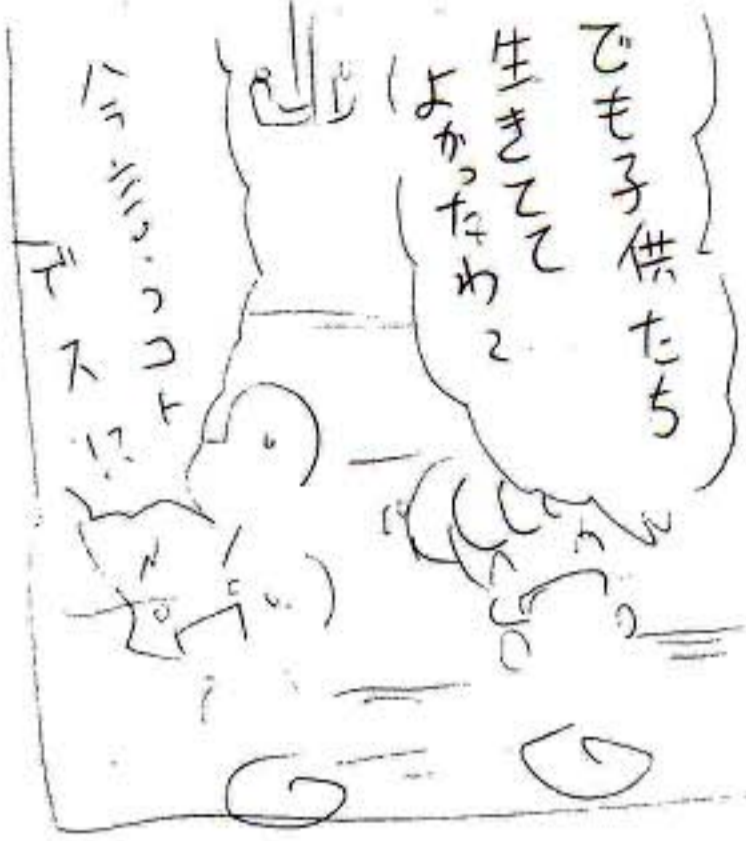 でも子供たち
生きてて
よかったわ〜
今言うコト
デスか!?